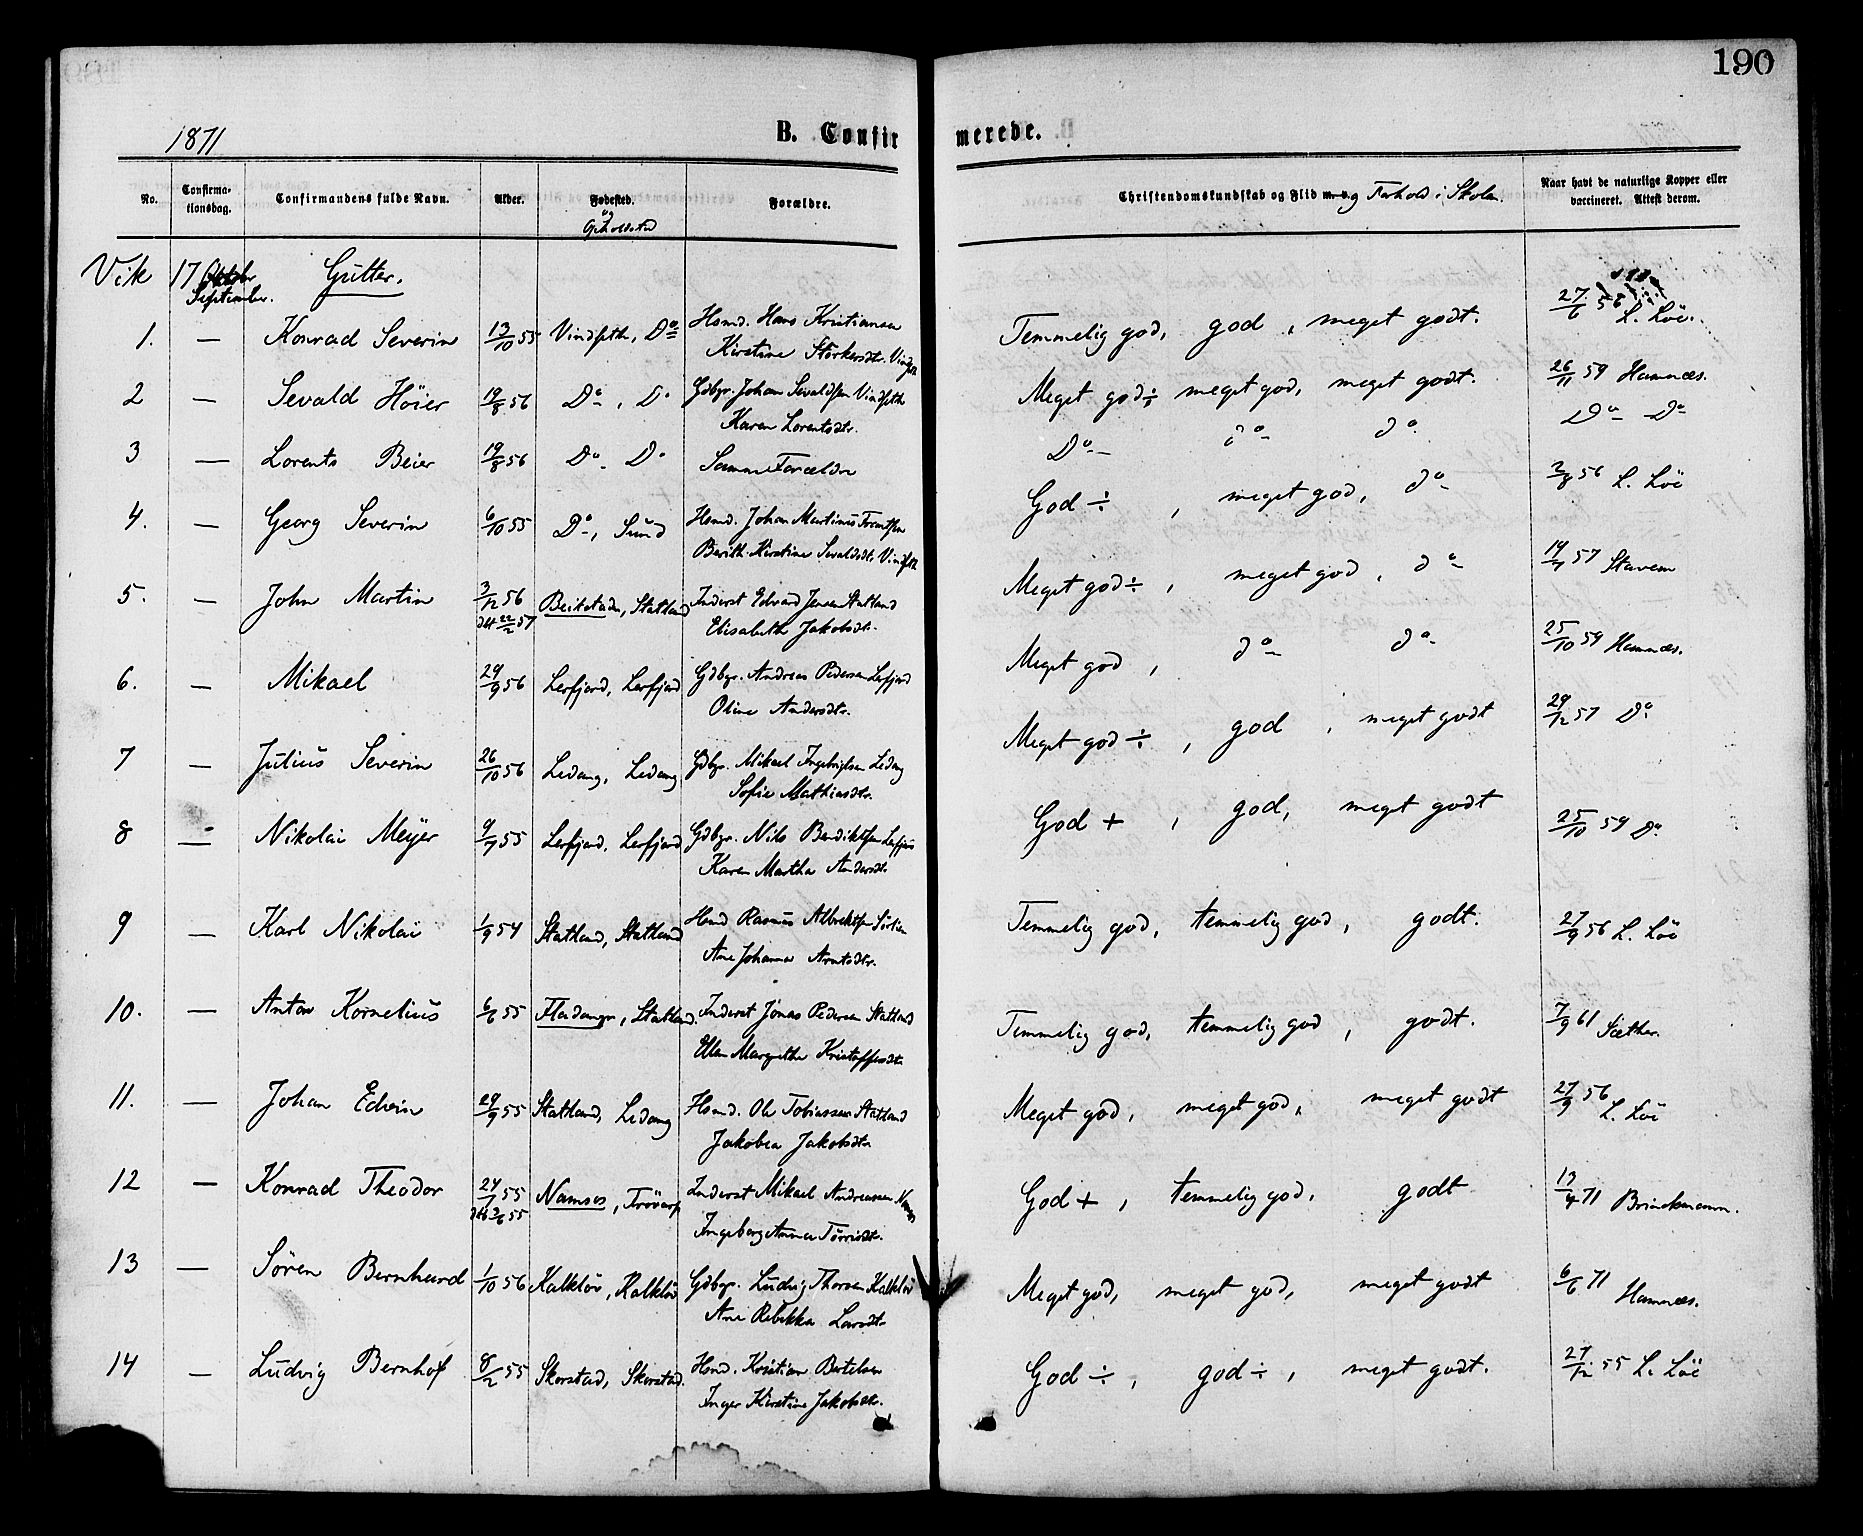 190
1871 B. Confirmerede.
No. Confirmationsdag. Confirmandens fulde Navn. Alder. Fødested. og Opholdssted Forældre. Christendomskundskab og Flid m. v. og Forhold i Skolen. Naar havt de naturlige Kopper eller vaccineret. Attest derom.
Vik 17 September. Gutter.
1. — Konrad Severin 13/10 55 Vindseth, Do Hsmd. Hans Kristiansen Temmelig god, god, meget godt. 27/6 56 L. Löe.
Kirstine Storkersdtr. Vindseth
2 — Sevald Höier 19/8 56 Do, Do Gdbgr. Johan Sevaldsen Vindseth Meget god ÷ meget god, meget godt. 26/11 59 Hamnes.
Karen Lorentsdtr.
3 — Lorents Beier 19/8 56 Do Do Samme Forældre Do do do Do Do
4. — Georg Severin 6/10 55 Do, Sund Hsmd. Johan Martinus God ÷, meget god, do 2/8 56 L. Löe
Berith Kirstine Sevaldsdtr. Vindseth
5. — John Martin 3/12 56 Beitstaden, Statland Inderst Edvard Jensen Statland Meget god ÷, meget god, do 14/7 57 Stavem
døbt 22/2 57 Elisabeth Jakobsdtr.
6. — Mikael 29/9 56 Lerfjord, Lerfjord Gdbgr. Andreas Pedersen Lerfjord Meget god, do do 25/10 59 Hamnes.
Oline Andersdtr.
7 — Julius Severin 26/10 56 Ledang, Ledang Gdbgr. Mikael Ingebrigtsen Ledang Meget god ÷, god, meget godt 29/12 57 Do
Sofie Mathiasdtr.
8 — Nikolai Meyer 9/7 55 Lerfjord, Lerfjord Gdbgr. Nils Bendiktsen Lerfjord God +, god, meget godt 25/10 59 Do
Karen Martha Andersdtr.
9 — Karl Nikolai 1/9 54 Statland, Statland Hsmd Rasmus Albrektsen Temmelig god, temmelig god, godt. 27/9 56 L. Löe
Ane Johanna Arntsdtr.
10. — Anton Kornelius 6/6 55 Fladanger, Statland. Inderst Jonas Pedersen Statland Temmelig god, temmelig god, godt. 7/9 61 Sæther.
Ellen Margrethe Kristoffersdtr.
11. — Johan Edvin 29/9 55 Statland, Ledang Hsmd. Ole Tobiassen Statland Meget god, meget god, meget godt 27/9 56 L. Löe
Jakobea Jakobsdtr
12 — Konrad Theodor 24/1 55 Namsos, Inderst Mikael Andreassen God +, temmelig god, godt 13/4 71 Brinckmann.
Ingeborg Anna
13 — Sören Bernhard 1/10 56 Kalklöv, Kalklöv Gdbgr. Ludvig Thorsen Kalklöv Meget god, meget god, meget godt 6/6 71 Hamnes.
Ane Rebekka Larsdtr
14 — Ludvig Bernhof 8/2 55 Skorstad, Skorstad. Hsmd. Kristian Bertelsen God ÷, god ÷, meget godt. 27/12 55 L. Löe
Inger Kirstine Jakobsdtr.